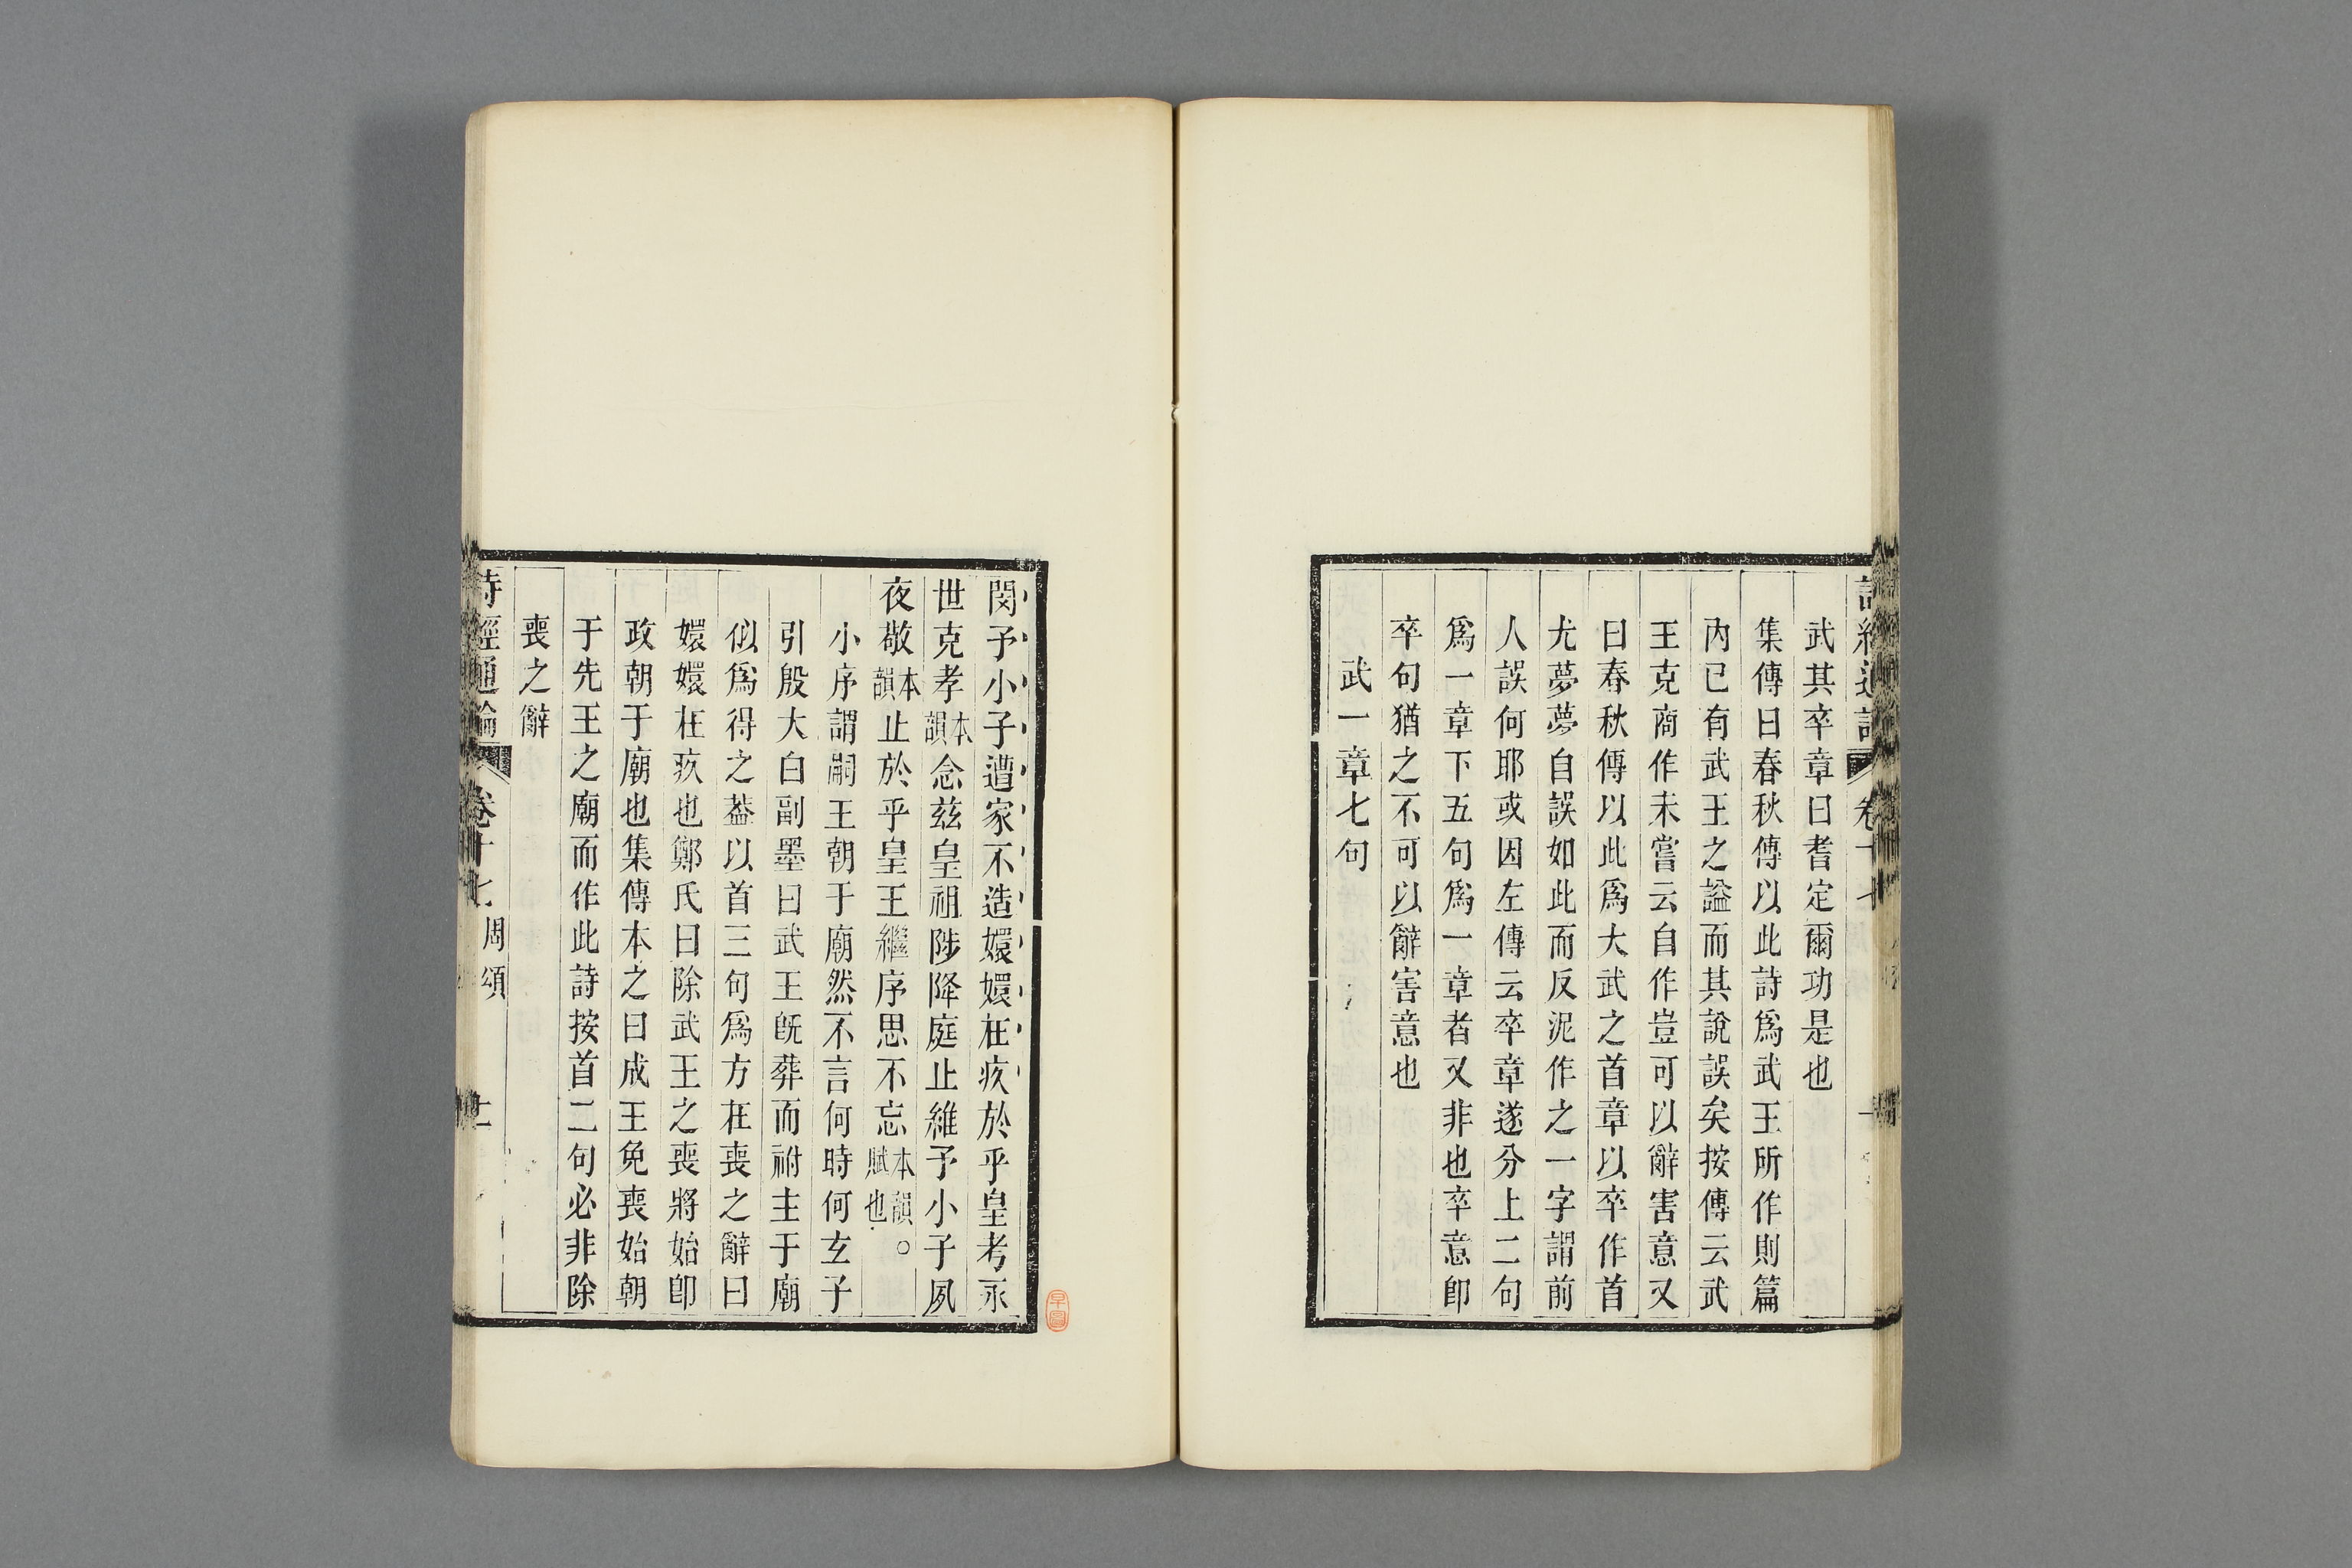 武其卒章曰耆定爾功是也
集傳曰春秋傳以此詩爲武王所作則篇
內已有武王之謚而其說誤矣按傳云武
王克商作未嘗云自作豈可以辭害意又
曰春秋傳以此爲大武之首章以卒作首
尤夢夢自誤如此而反泥作之一字謂前
人誤何耶或因左傳云卒章遂分上二句
爲一章下五句爲一章者又非也卒意卽
卒句猶之不可以辭害意也
武一章七句
閔予小子遭家不造嬛嬛在疚於乎皇考永
世克孝本韻念茲皇祖陟降庭止維予小子夙
夜敬本韻止於乎皇王繼序思不忘本韻○賦也
小序謂嗣王朝于廟然不言何時何玄子
引殷大白副墨曰武王旣葬而祔主于廟
似爲得之葢以首三句爲方在喪之辭曰
嬛嬛在疚也鄭氏曰除武王之喪將始卽
政朝于廟也集傳本之曰成王免喪始朝
于先王之廟而作此詩按首二句必非除
喪之辭
詩經通論 卷十七 周頌